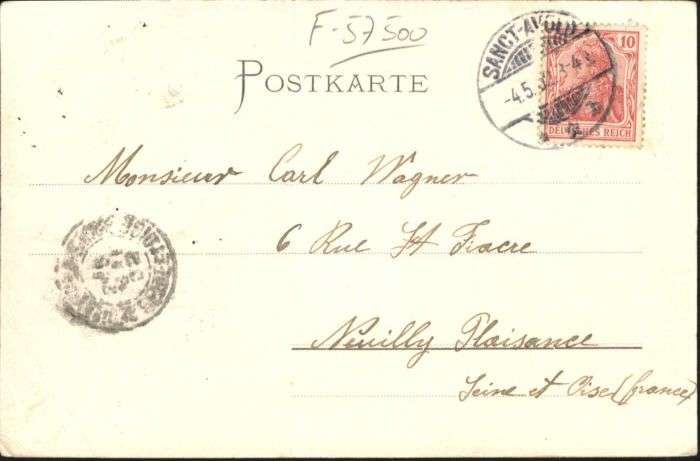 F-57500
POSTKARTE
SANCT-AVOLD
-4.5. 3-4
10
DEUTSCHES REICH
Monsieur Carl Wagner
6 Rue St Fiacre
Neuilly Plaisance
Seine et Oise (france)